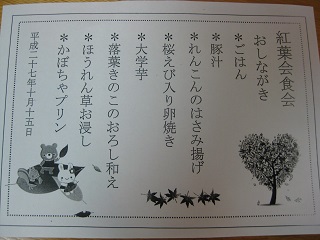 紅葉会食会
おしながき
＊ごはん
＊豚汁
＊れんこんのはさみ揚げ
＊桜えび入り卵焼き
＊大学芋
＊落葉きのこのおろし和え
＊ほうれん草お浸し
＊かぼちゃプリン
平成二十七年十月十五日